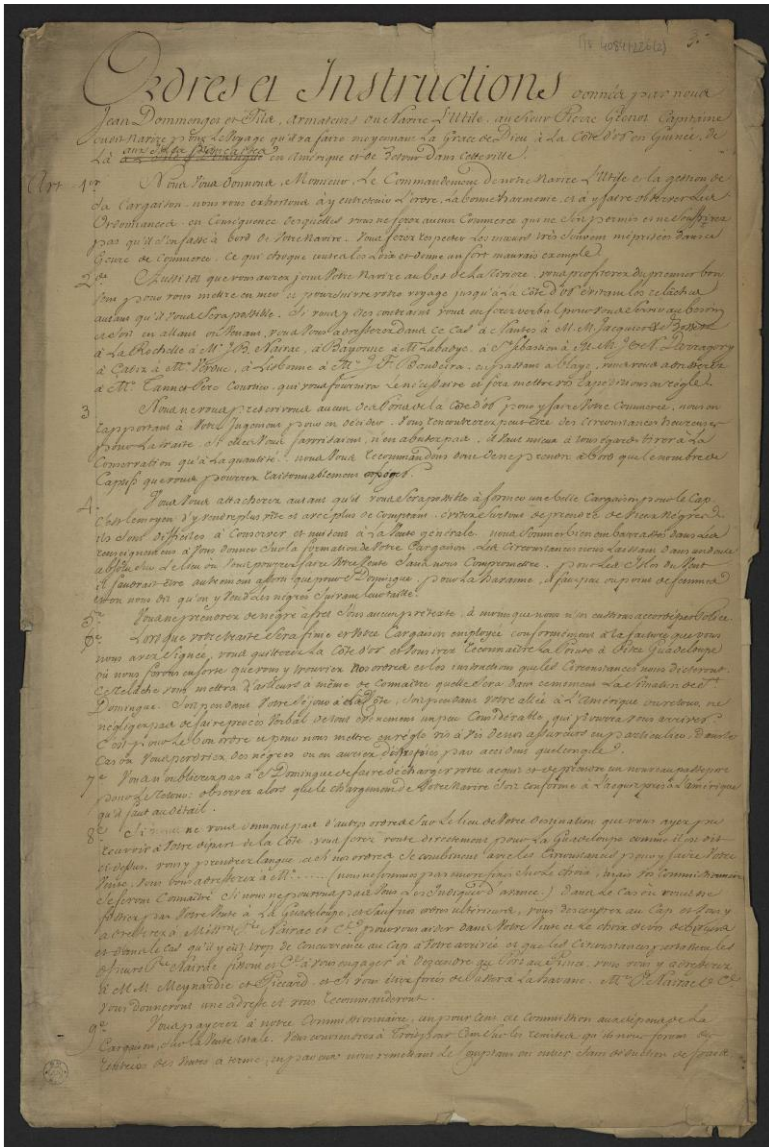 Ordres et Instructions donnés par nous
Jean Dommenget et Fila, armateurs du Navire L'Utile, au Sieur Pierre Capitaine
dudit Navire pour Le Voyage qu'il va faire moyennant La Grace de Dieu à La Côte d'or en Guinée, de
Là aux Isles françaises en Amérique et de Retour dans cette ville.
Art. 1er Nous Vous donnons, Monsieur, Le Commandement de notre Navire L'Utile et la gestion de
sa Cargaison, nous vous exhortons à y entretenir L'ordre, La bonne harmonie, et à y faire observer Les
Ordonnances, en Consequence desquelles vous ne ferez aucun Commerce qui ne soit permis et ne souffrirez
pas qu'il s'en fasse à bord de Votre Navire. Vous ferez respecter Les mœurs très souvent méprisées dans ce
Genre de Commerce, Ce qui choque toutes les Loix et donne un fort mauvais exemple.
2de Aussitôt que vous aurez joint Votre Navire au bas de La Rivière, vous profiterez du premier bon
vent pour vous mettre en mer et poursuivre votre voyage jusqu'à La Côte d'or évitant les relâches
autant qu'il Vous Sera possible. Si vous y êtes contraint vous en ferez verbal pour vous servir au besoin
et soit en allant ou Venant, vous Vous adresserez dans ce Cas à Nantes à M.M. Jacquier
à La Rochelle à Mr. J.B. Nairac, à Bayonne à Mr. Labadye, à St. Sébastien à M.M. J. & N. Darragory
à Cadix à Mr. Verduc, à Lisbonne à Mr. J. F. Bandeira. en passant à blaye, vous vous adresserez
à Mr. Tannet Père Courtier, qui vous fournira Le nécessaire et fera mettre vos expéditions en règle.
3 Nous ne vous prescrivons aucun des ports de la Côte d'or pour y faire Votre Commerce, nous en
rapportant à Votre Jugement pour en décider. Vous rencontrerez peut-être des circonstances heureuses
pour La traite, Si elles Vous favorisaient, n'en abusez pas, il Vaut mieux à tous égards viser à La
Conservation qu'à La quantité. nous Vous recommandons donc de ne prendre à bord que le nombre de
Captifs que vous pourrez raisonnablement loger.
4. Vous Vous attacherez autant qu'il vous Sera possible à former une belle Cargaison pour Le Cap
C'est Le moyen d'y Vendre plus vite et avec plus de Comptant. évitez Surtout de prendre de vieux Nègres
ils Sont difficiles à Conserver et nuisent à La Vente générale. nous Sommes bien embarrassés dans Les
renseignements à Vous donner Sur la formation de Votre Cargaison. Les Circonstances nous Laissent dans un doute
absolu Sur Le lieu où Vous pourrez faire Votre Vente Sans nous Compromettre. pour Les Isles du Vent
il faudrait être autrement assorti que pour St Domingue, pour La havanne,
et on nous dit qu'on y Vend Les nègres Suivant leur taille.
5e Vous ne prendrez de nègre à fret Sous aucun prétexte, à moins que nous n'en eussions accordé par Police.
6e Lorsque votre traite Sera finie et Votre Cargaison employée conformément à La facture que vous
nous avez Signée, vous quitterez La Côte d'or et Vous irez reconnaître La Pointe à Pitre Guadeloupe
où nous ferons en sorte que vous y trouviez Nos ordres et les instructions que les Circonstances nous dicteront.
Ce relâche vous mettra d'ailleurs à même de connaître quelle Sera dans ce moment La Situation de St.
Domingue. Soit pendant Votre Séjour à La Côte, Soit pendant votre allée à L'Amérique ou retour, ne
négligez pas de faire procès Verbal de tout événement un peu Considérable, qui pourra vous arriver.
C'est pour Le bon ordre et pour nous mettre en règle vis à Vis de nos assureurs en particulier, Dans le
Cas où Vous perdriez des nègres ou en auriez par accident quelconque.
7e Vous n'oublierez pas à St Domingue de faire décharger votre acquit et de prendre un nouveau passeport
pour Le Retour. observez alors que le chargement de Votre Navire Soit conforme à L'acquit pris à L'amérique
qu'il faut au détail.
8e Si nous ne vous donnons pas d'autres ordres Sur Le lieu de Votre Destination que vous ayez pu
recevoir à Votre départ de la Côte, vous ferez route directement pour La Guadeloupe comme il est dit
ci dessus, vous y prendrez langue, et si nos ordres Se combinent avec les Circonstances pour y faire Votre
Vente, Vous Vous adresserez à Mr. ........ (nous ne sommes pas encore fixés sur Le choix, mais nos Commissionnaires
Se feront Connaître Si nous ne pouvons pas Vous Les indiquer d'avance.) Dans Le Cas où vous ne
fassiez pas Votre Vente à La Guadeloupe, et Sauf nos ordres ultérieurs, vous Vous rendrez au Cap et Vous y
adresserez à Messrs. Pre. Nairac et Ce. pour vous aider dans Votre Vente et Le choix de
et dans Le cas qu'il y eut trop de Concurrence au Cap à Votre arrivée et que les Circonstances portassent les
Sieurs Pre. Nairac à Vous engager à descendre au Port au Prince, vous vous y adresserez
à M.M. Meynardie et Piccard, et Si vous étiez forcés de passer à La havane, Mrs. P. Nairac & Ce.
Vous donneront une adresse et vous recommanderont.
9e Vous payerez à notre Commissionnaire, pour Cent de Commission au dépens de La
Cargaison, Sur La Vente totale. Vous conviendrez à Trois pour Cent Sur Les remises qu'ils nous feront des
rentrées des Ventes à terme,